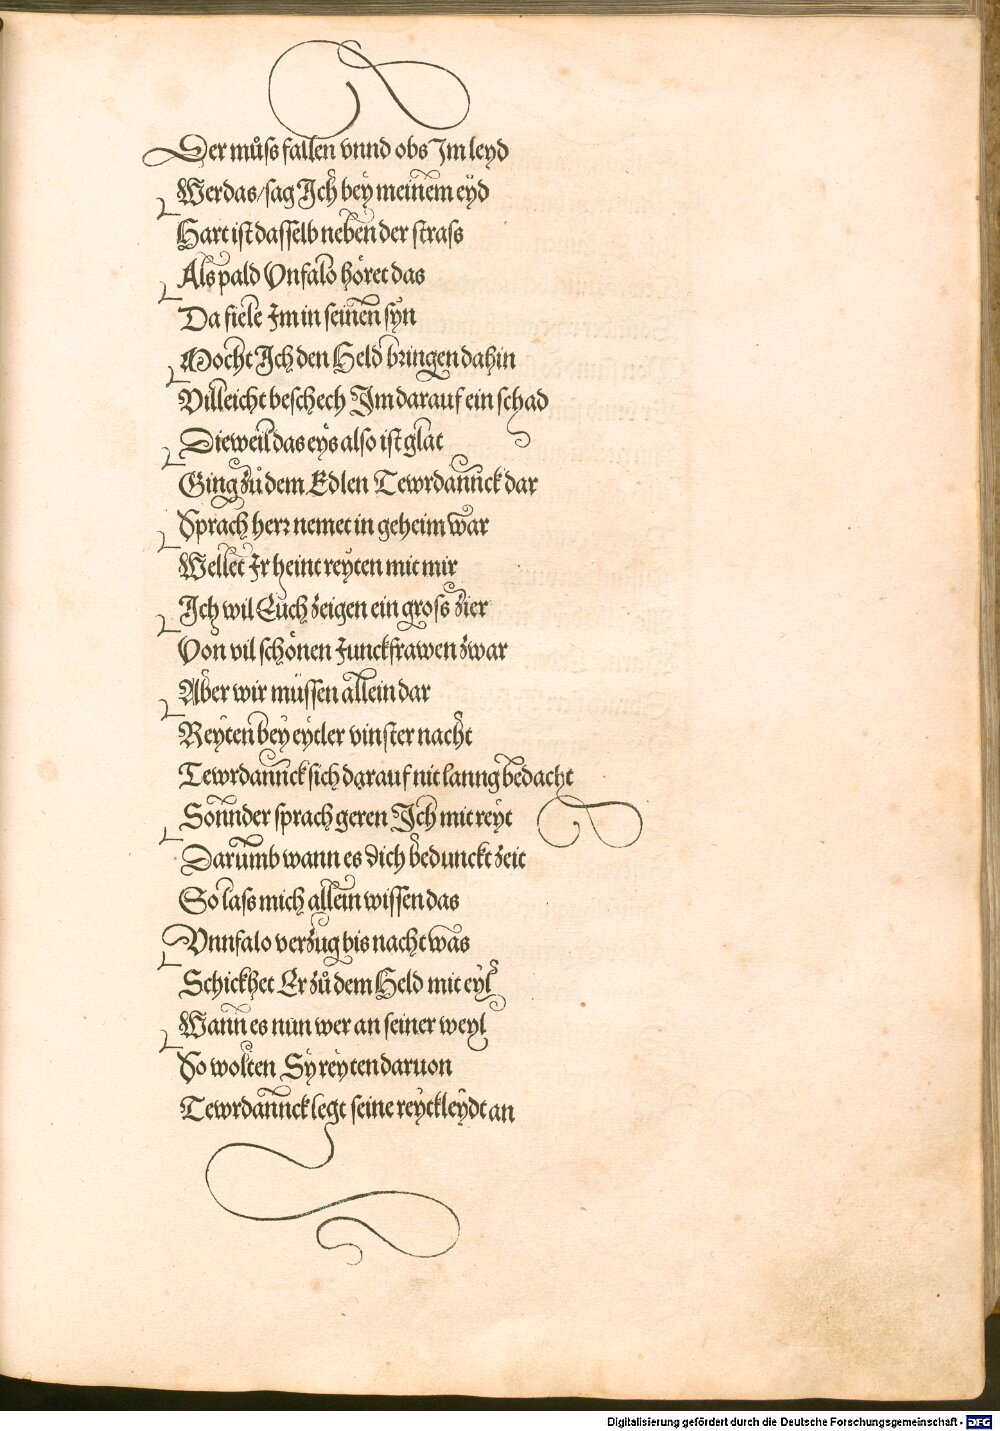 Der můſs fallen vnnd obs Jm leyd
Werdas/ſag Ich beÿ meinem eÿd
Hart iſt daſſelb neben der ſtraſs
Als pald Vnfalo höret das
Da fiele Im in ſeinen ſyn
Mocht Ich den Held bringen dahin
Villeicht beſchech Jm darauf ein ſchad
Dieweil das eÿs alſo iſt glat
Ging zů dem Edlen Tewrdannck dar
Sprach herr nemet in geheim war
Wellet Ir heint reÿten mit mir
Ich wil Euch zeigen ein groſs zier
Von vil ſchönen Junckfrawen zwar
Aber wir müſſen allein dar
Reÿten beÿ eÿtler vinſter nacht
Tewrdannck ſich darauf nit lanng bedacht
Sonnder ſprach geren Ich mit reÿt
Darumb wann es dich bedunckt zeit
So laſs mich allein wiſſen das
Vnnfalo verzug bis nacht was
Schickhet Er zů dem Held mit eÿl
Wann es nun wer an ſeiner weyl
So wolten Sy reÿten daruon
Tewrdannck legt ſeine reÿtkleÿdt an
Digitalisierung gefördert durch die Deutsche Forschungsgemeinschaft - DFG